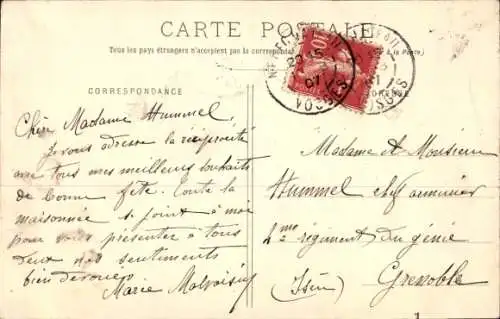 CARTE POSTALE
Tous les pays étrangers n'acceptent pas la correspondance à la Poste)
CORRESPONDANCE
20 15
07
VOSGES
10
VOSGES
Chère Madame Hummel
Je vous adresse la réciprocité
avec tous mes meilleurs souhaits
de bonne fête. Toute la
maisonnée se joint à moi
pour vous présenter à tous
deux nos sentiments
bien dévoués
Marie Malvoisin
Madame et Monsieur
Hummel chef armurier
4me régiment du génie
Grenoble
(Isère)